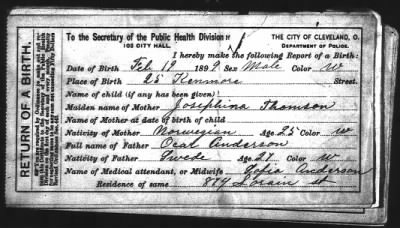 RETURN OF A BIRTH.
To the Secretary of the Public Health Division
103 CITY HALL.
THE CITY OF CLEVELAND, O.
DEPARTMENT OF POLICE.
I hereby make the following Report of a Birth:
Date of Birth Feb 19 1899 Sex Male Color W
Place of Birth 25 Kenmore Street.
Name of child (if any has been given)
Maiden name of Mother Josephina Thomson
Name of Mother at date of birth of child
Nativity of Mother Norwegian Age 25 Color W
Full name of Father Ocal Anderson
Nativity of Father Swede Age 27 Color W
Name of Medical attendant, or Midwife Sofia Anderson
Residence of same 879 Lorain st